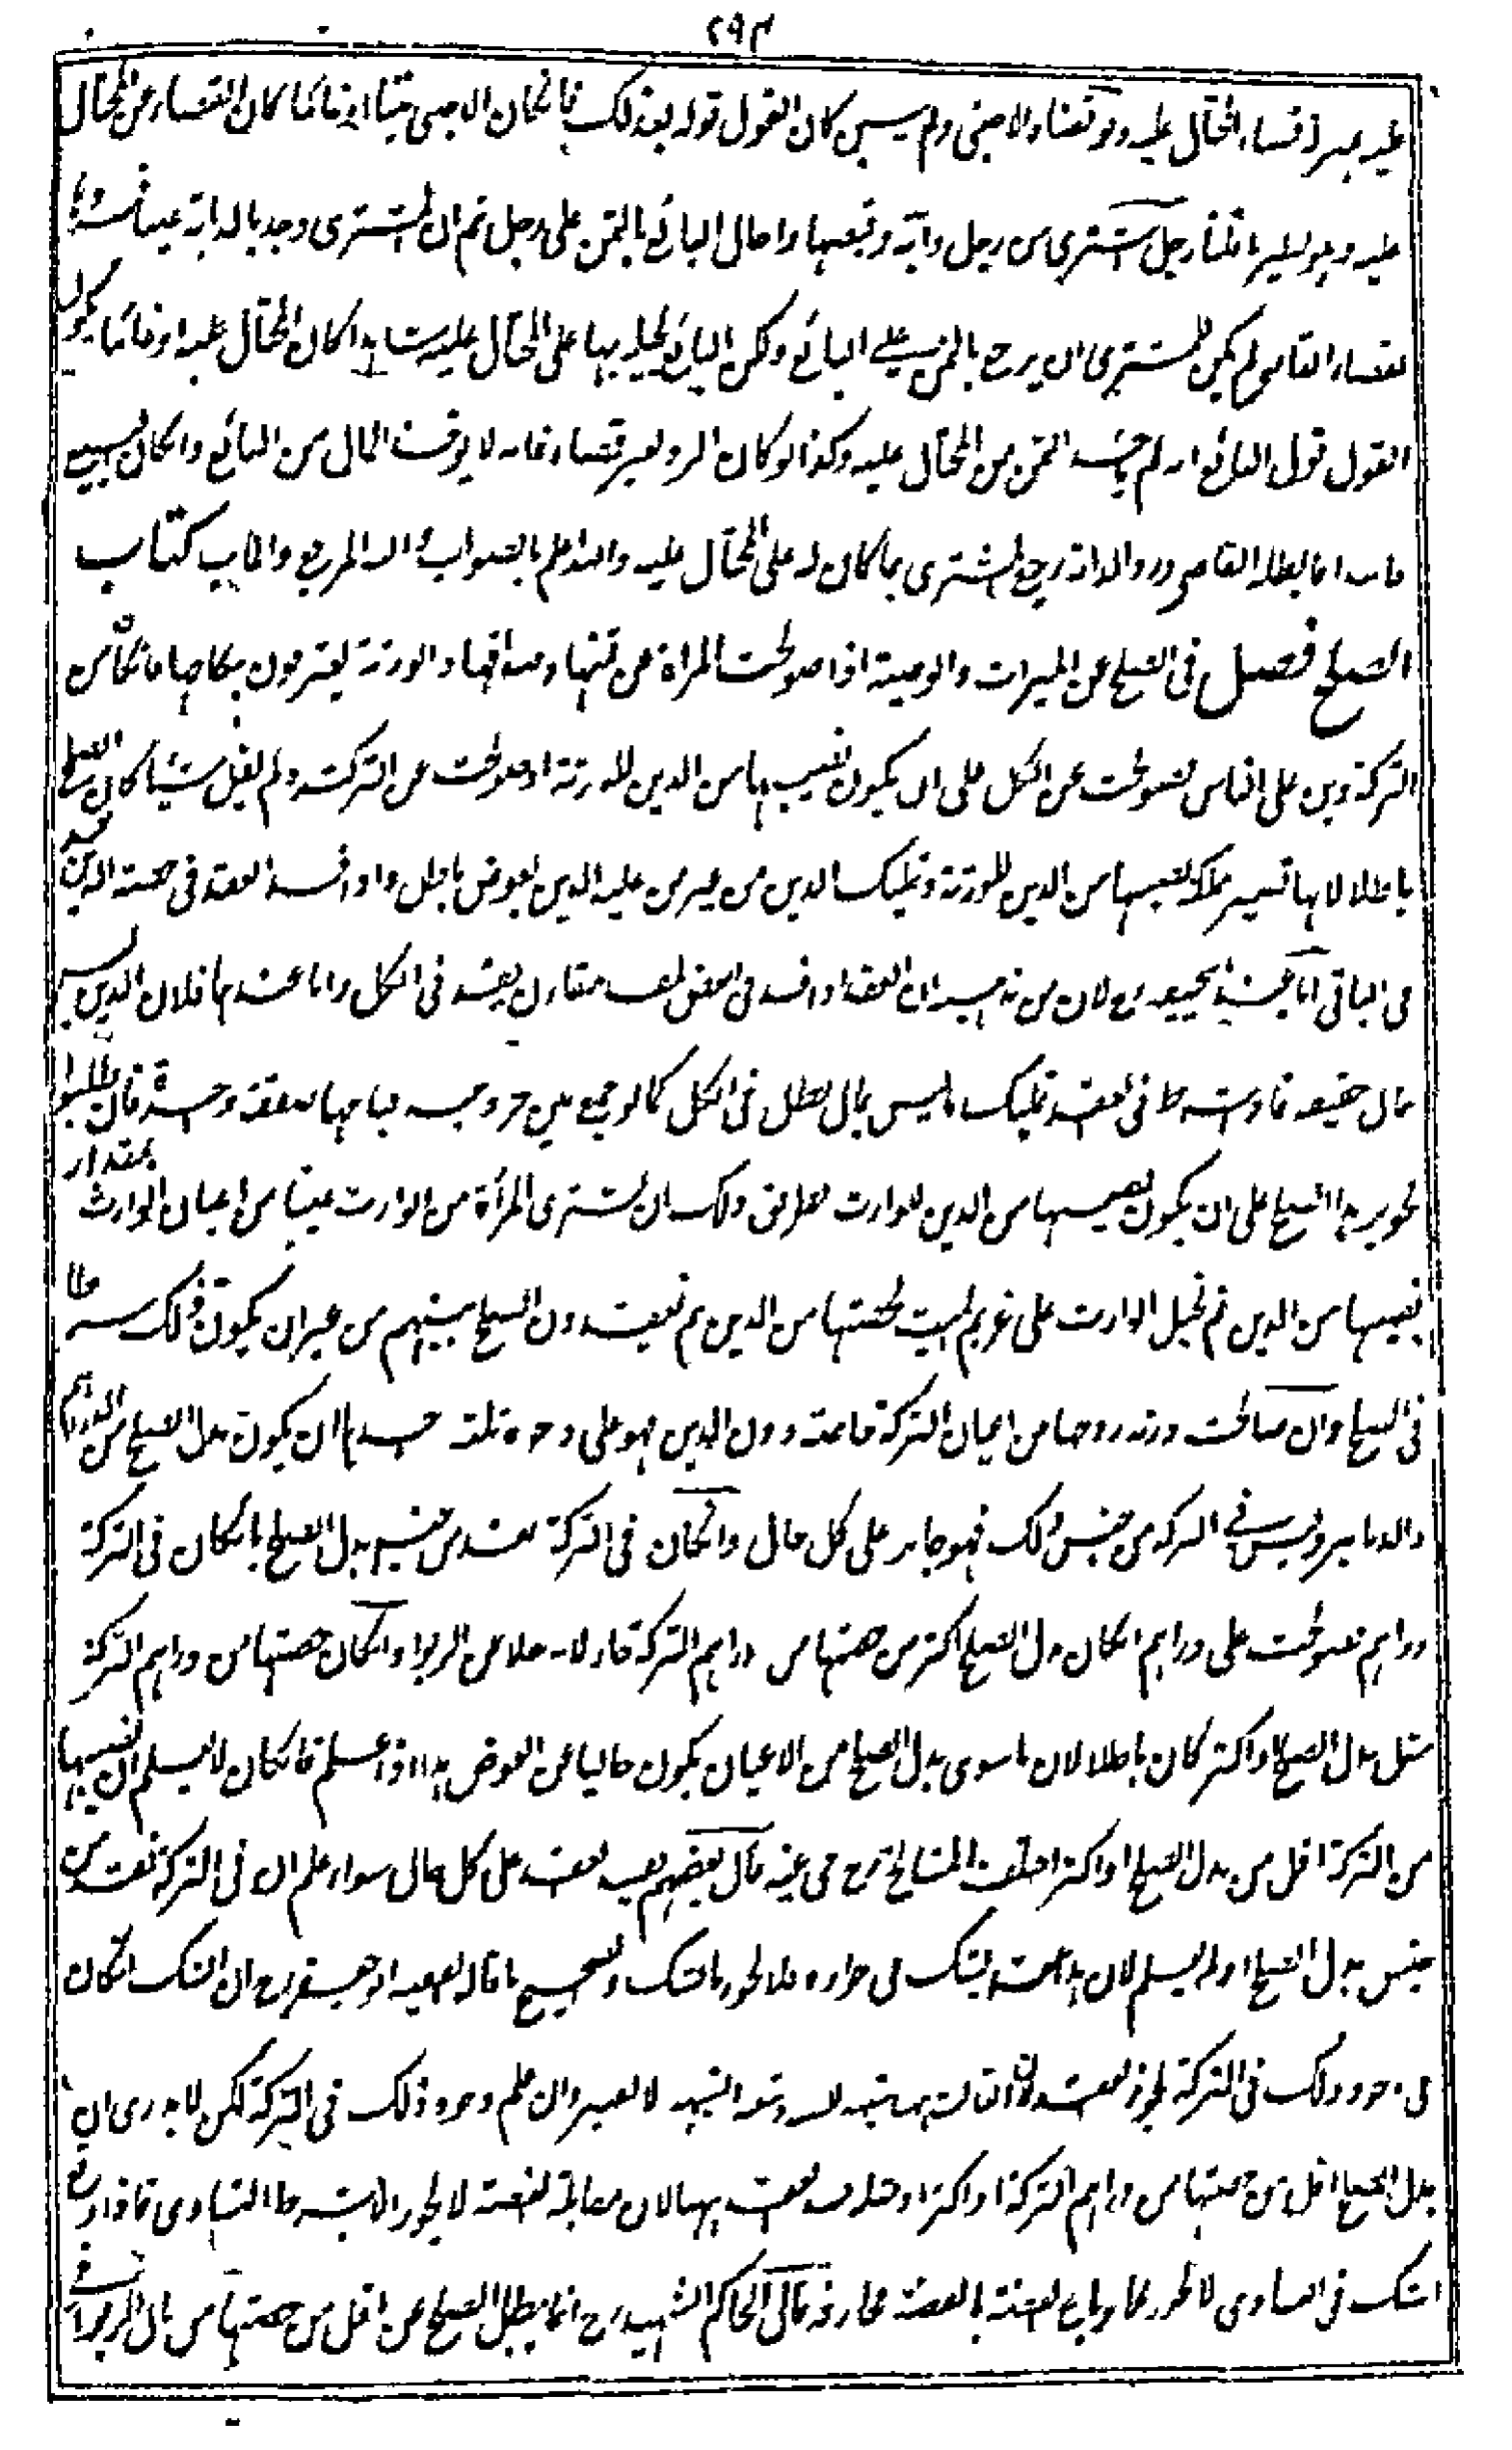 ٢٩٣
عليه بغير قضاء المحتال عليه ولو قضاه الاجنبى ولم يبين كان القول قوله بعد ذلك فانكان الاجنبى ميتا او غائبا كان القضاء عن المحتال
عليه رجل اشترى من رجل دابة وقبضها واحال البائع بالثمن على رجل ثم ان المشترى وجد بالدابة عيبا فردها
بقضاء القاضى لم يكن للمشترى ان يرجع بالثمن على البائع ولكن البائع يحيله بها على المحتال عليه شاهدا كان المحتال عليه او غائبا يكون
القول قول البائع انه لم ياخذ الثمن من المحتال عليه وكذا لو كان الرد بغير قضاء فانه لا يؤخذ المال من البائع وان كان البيع
فاسدا فابطله القاضى ورد الدابة رجع المشترى بما كان له على المحتال عليه والله اعلم بالصواب واليه المرجع والمآب كتاب
الصلح فصل فى الصلح عن الميراث والوصية اذا صولحت المرأة عن ثمنها وصداقها والورثة يعترفون بنكاحها فانكان من
التركة دين على الناس فصولحت عن الكل على ان يكون نصيبها من الدين للورثة او صولحت عن التركة ولم يقل شيئا كان الصلح
باطلا لانها تصير مملكة نصيبها من الدين للورثة وتمليك الدين من غير من عليه الدين بعوض باطل واذا فسد العقد فى حصة الدين فسد
فى الباقى اما عند ابى حنيفة رح لان من مذهبه ان العقد اذا فسد فى البعض لمفسد مقارن يفسد فى الكل واما عندهما فلان الدين ليس
بمال حقيقة فاذا شرط فى العقد تمليك ما ليس بمال بطل فى الكل كما لو جمع بين حر وعبد فباعهما صفقة واحدة فان طلبوا
تجويز هذا الصلح على ان يكون نصيبها من الدين للوارث فطريق ذلك ان تشترى المرأة من الوارث عينا من اعيان الوارث بمقدار
نصيبها من الدين ثم تحيل الوارث على غريم الميت بحصتها من الدين ثم يعقدون الصلح بينهم من غير ان يكون ذلك شرطا
فى الصلح وان صالحت ورثة زوجها من اعيان التركة خاصة دون الدين فهو على وجوه ثلثة احدها ان يكون بدل الصلح من الدراهم
والدنانير وليس فى التركة من جنس ذلك فهو جائز على كل حال وانكان فى التركة نقد من جنس بدل الصلح بان كان فى التركة
دراهم فصولحت على دراهم ان كان بدل الصلح اكثر من حصتها من دراهم التركة جاز لانه خلا عن الربوا وانكان حصتها من دراهم التركة
مثل بدل الصلح او اكثر كان باطلا لان ما سوى بدل الصلح من الاعيان يكون خاليا عن العوض هذا اذا علم فانكان لا يعلم ان نصيبها
من التركة اقل من بدل الصلح او اكثر اختلف المشايخ رح فيه قال بعضهم يفسد العقد على كل حال سواء علم ان فى التركة نقد من
جنس بدل الصلح او لم يعلم لان هذا عقد يشك فى جوازه فلا يجوز بالشك والصحيح ما قاله الفقيه ابو جعفر رح ان الشك ان كان
فى وجود ذلك فى التركة يجوز العقد لان الثابت ههنا شبهة الشبهة والشبهة لا تعتبر وان علم وجود ذلك فى التركة لكن لا يدرى ان
بدل الصلح اقل من حصتها من دراهم التركة او اكثر او مثله فسد العقد ههنا لان مقابلة الفضة لا يجوز الا بشرط التساوى فاذا وقع
الشك فى التساوى لا يجوز كما لو باع الفضة بالفضة مجازفة قال الحاكم الشهيد رح انما يبطل الصلح عن اقل من حصتها من مال الربوا فى